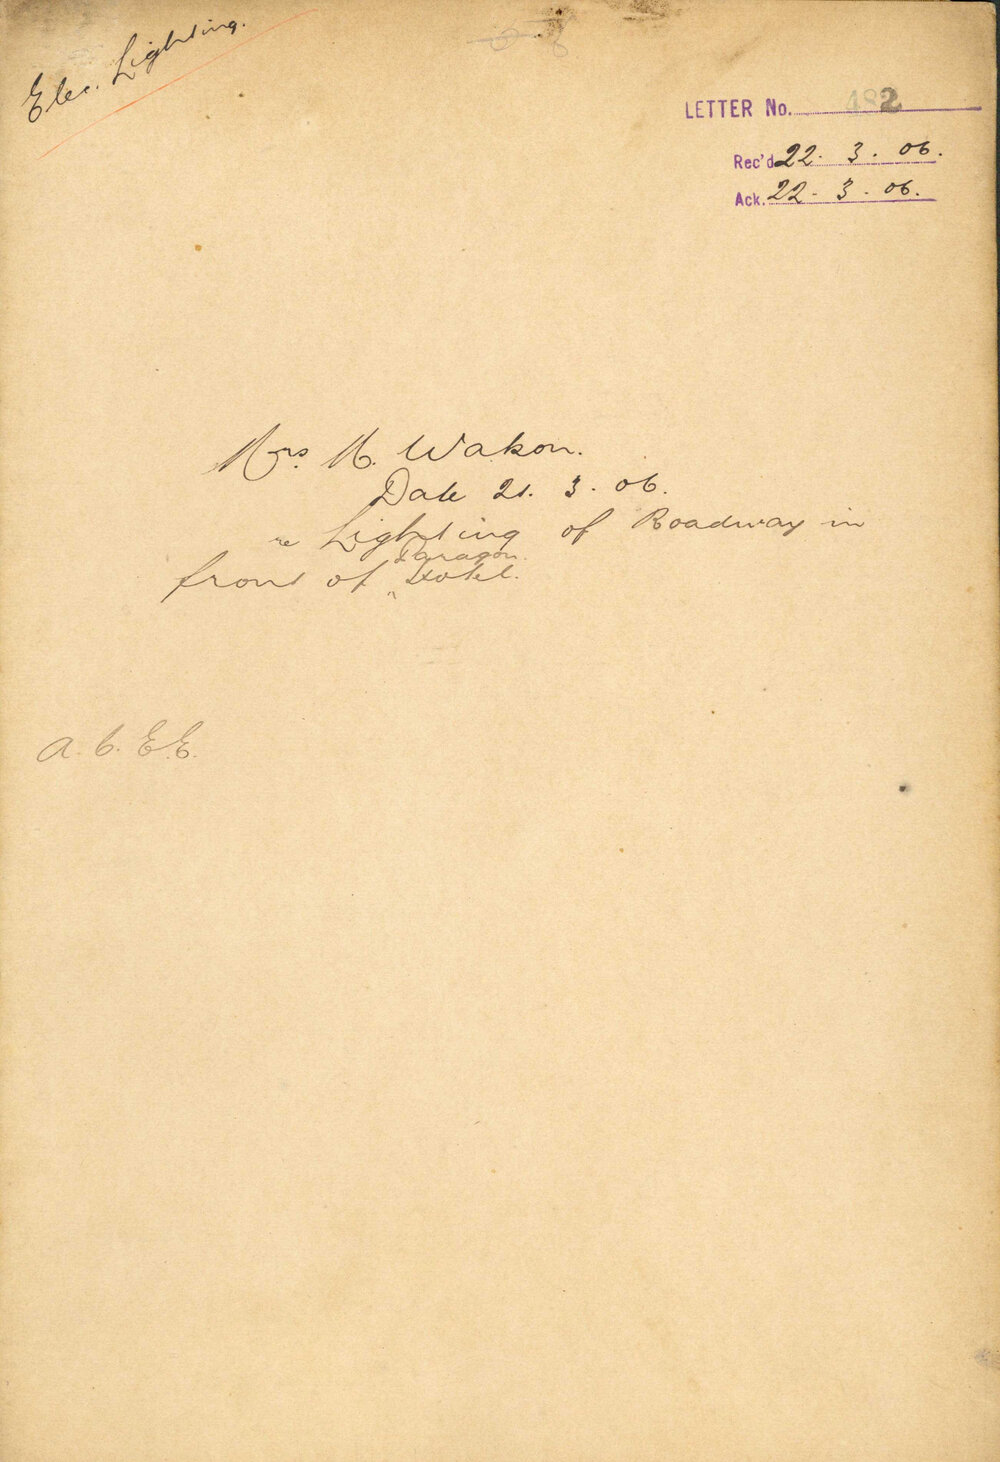 Elec. Lighting.
LETTER No. 482
Rec'd 22. 3. 06.
Ack. 22. 3. 06.
Mrs. M. Wakon.
Date 21. 3. 06.
re Lighting of Roadway in
Paragon
front of Hotel.
A. C. E. E.